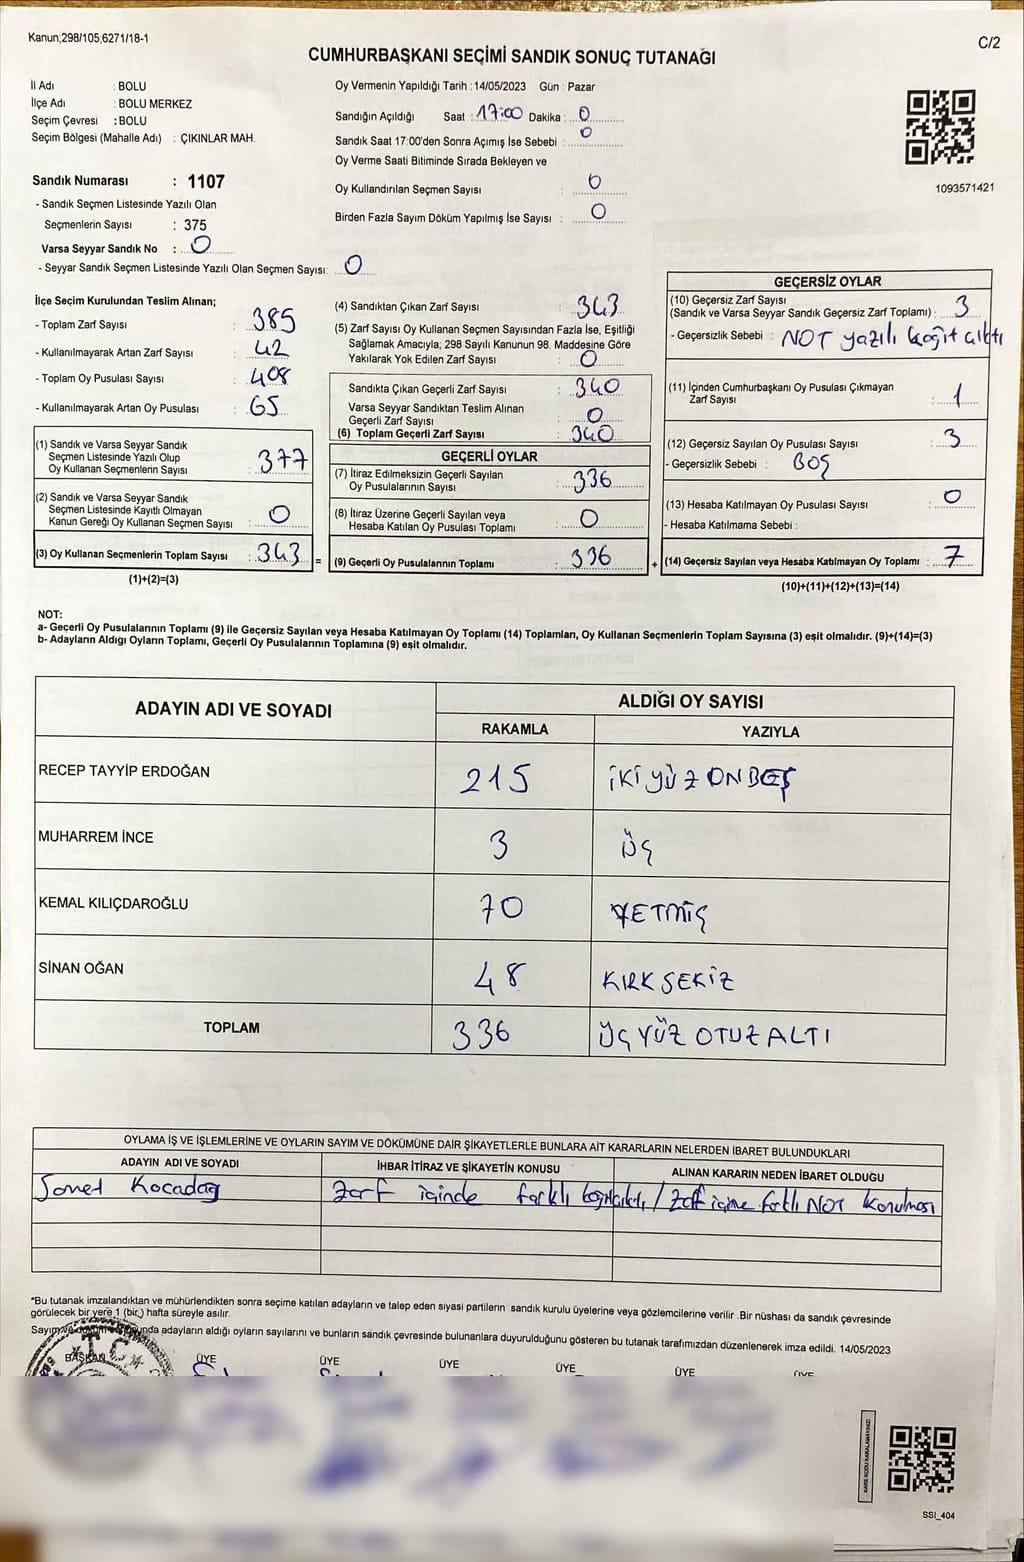 Kanun;298/105,6271/18-1
C/2
CUMHURBAŞKANI SEÇİMİ SANDIK SONUÇ TUTANAĞI
İl Adı : BOLU
İlçe Adı : BOLU MERKEZ
Seçim Çevresi : BOLU
Seçim Bölgesi (Mahalle Adı) : ÇIKINLAR MAH.
Oy Vermenin Yapıldığı Tarih : 14/05/2023 Gün : Pazar
Sandığın Açıldığı Saat : 17:00 Dakika : 0
Sandık Saat 17:00'den Sonra Açımış İse Sebebi : 0
Oy Verme Saati Bitiminde Sırada Bekleyen ve
Oy Kullandırılan Seçmen Sayısı : 0
Birden Fazla Sayım Döküm Yapılmış İse Sayısı : 0
1093571421
Sandık Numarası : 1107
- Sandık Seçmen Listesinde Yazılı Olan
Seçmenlerin Sayısı : 375
Varsa Seyyar Sandık No : 0
- Seyyar Sandık Seçmen Listesinde Yazılı Olan Seçmen Sayısı: 0
İlçe Seçim Kurulundan Teslim Alınan;
- Toplam Zarf Sayısı : 385
- Kullanılmayarak Artan Zarf Sayısı : 42
- Toplam Oy Pusulası Sayısı : 408
- Kullanılmayarak Artan Oy Pusulası : 65
(1) Sandık ve Varsa Seyyar Sandık
Seçmen Listesinde Yazılı Olup
Oy Kullanan Seçmenlerin Sayısı : 377
(2) Sandık ve Varsa Seyyar Sandık
Seçmen Listesinde Kayıtlı Olmayan
Kanun Gereği Oy Kullanan Seçmen Sayısı : 0
(3) Oy Kullanan Seçmenlerin Toplam Sayısı : 343 =
(1)+(2)=(3)
(4) Sandıktan Çıkan Zarf Sayısı : 343
(5) Zarf Sayısı Oy Kullanan Seçmen Sayısından Fazla İse, Eşitliği
Sağlamak Amacıyla; 298 Sayılı Kanunun 98. Maddesine Göre
Yakılarak Yok Edilen Zarf Sayısı : 0
Sandıkta Çıkan Geçerli Zarf Sayısı : 340
Varsa Seyyar Sandıktan Teslim Alınan
Geçerli Zarf Sayısı : 0
(6) Toplam Geçerli Zarf Sayısı : 340
GEÇERLİ OYLAR
(7) İtiraz Edilmeksizin Geçerli Sayılan
Oy Pusulalarının Sayısı : 336
(8) İtiraz Üzerine Geçerli Sayılan veya
Hesaba Katılan Oy Pusulası Toplamı : 0
(9) Geçerli Oy Pusulalarının Toplamı : 336 +
GEÇERSİZ OYLAR
(10) Geçersiz Zarf Sayısı
(Sandık ve Varsa Seyyar Sandık Geçersiz Zarf Toplamı) : 3
- Geçersizlik Sebebi : NOT yazılı kağıt çıktı
(11) İçinden Cumhurbaşkanı Oy Pusulası Çıkmayan
Zarf Sayısı : 1
(12) Geçersiz Sayılan Oy Pusulası Sayısı : 3
- Geçersizlik Sebebi : BOŞ
(13) Hesaba Katılmayan Oy Pusulası Sayısı : 0
- Hesaba Katılmama Sebebi :
(14) Geçersiz Sayılan veya Hesaba Katılmayan Oy Toplamı : 7
(10)+(11)+(12)+(13)=(14)
NOT:
a- Geçerli Oy Pusulalarının Toplamı (9) ile Geçersiz Sayılan veya Hesaba Katılmayan Oy Toplamı (14) Toplamları, Oy Kullanan Seçmenlerin Toplam Sayısına (3) eşit olmalıdır. (9)+(14)=(3)
b- Adayların Aldığı Oyların Toplamı, Geçerli Oy Pusulalarının Toplamına (9) eşit olmalıdır.
ADAYIN ADI VE SOYADI
ALDIĞI OY SAYISI
RAKAMLA YAZIYLA
RECEP TAYYİP ERDOĞAN 215 İKİ YÜZ ONBEŞ
MUHARREM İNCE 3 ÜÇ
KEMAL KILIÇDAROĞLU 70 YETMİŞ
SİNAN OĞAN 48 KIRK SEKİZ
TOPLAM 336 ÜÇ YÜZ OTUZ ALTI
OYLAMA İŞ VE İŞLEMLERİNE VE OYLARIN SAYIM VE DÖKÜMÜNE DAİR ŞİKAYETLERLE BUNLARA AİT KARARLARIN NELERDEN İBARET BULUNDUKLARI
ADAYIN ADI VE SOYADI İHBAR İTİRAZ VE ŞİKAYETİN KONUSU ALINAN KARARIN NEDEN İBARET OLDUĞU
Samet Kocadağ Zarf içinde farklı kağıt çıktı / Zarf içine farklı NOT konulması
*Bu tutanak imzalandıktan ve mühürlendikten sonra seçime katılan adayların ve talep eden siyasi partilerin sandık kurulu üyelerine veya gözlemcilerine verilir .Bir nüshası da sandık çevresinde
görülecek bir yere 1 (bir.) hafta süreyle asılır.
adayların aldığı oyların sayılarını ve bunların sandık çevresinde bulunanlara duyurulduğunu gösteren bu tutanak tarafımızdan düzenlenerek imza edildi. 14/05/2023
T.C.
BAŞKAN ÜYE ÜYE ÜYE ÜYE ÜYE ÜYE
KARE KODU KARALAMAYINIZ!
SSI_404